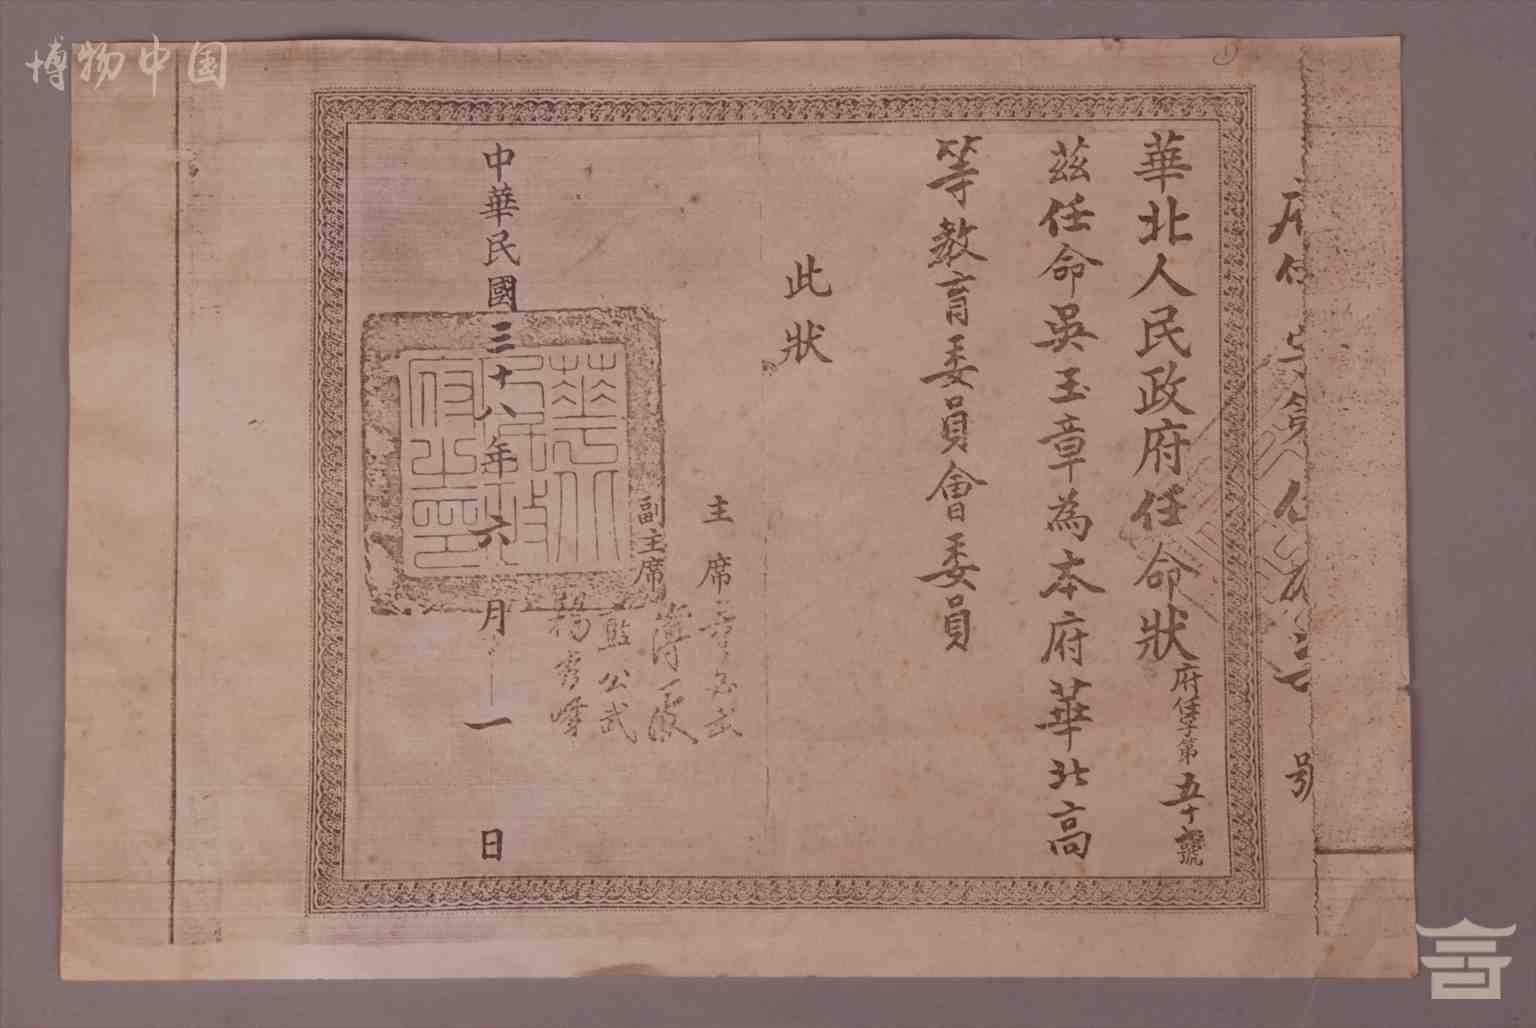 博物中国
華北人民政府任命狀
府任字第五十號
茲任命吳玉章為本府華北高
等教育委員會委員
此狀
主席 董必武
副主席 薄一波
藍公武
楊秀峰
中華民國三十八年六月一日
華北人民政府之印
號